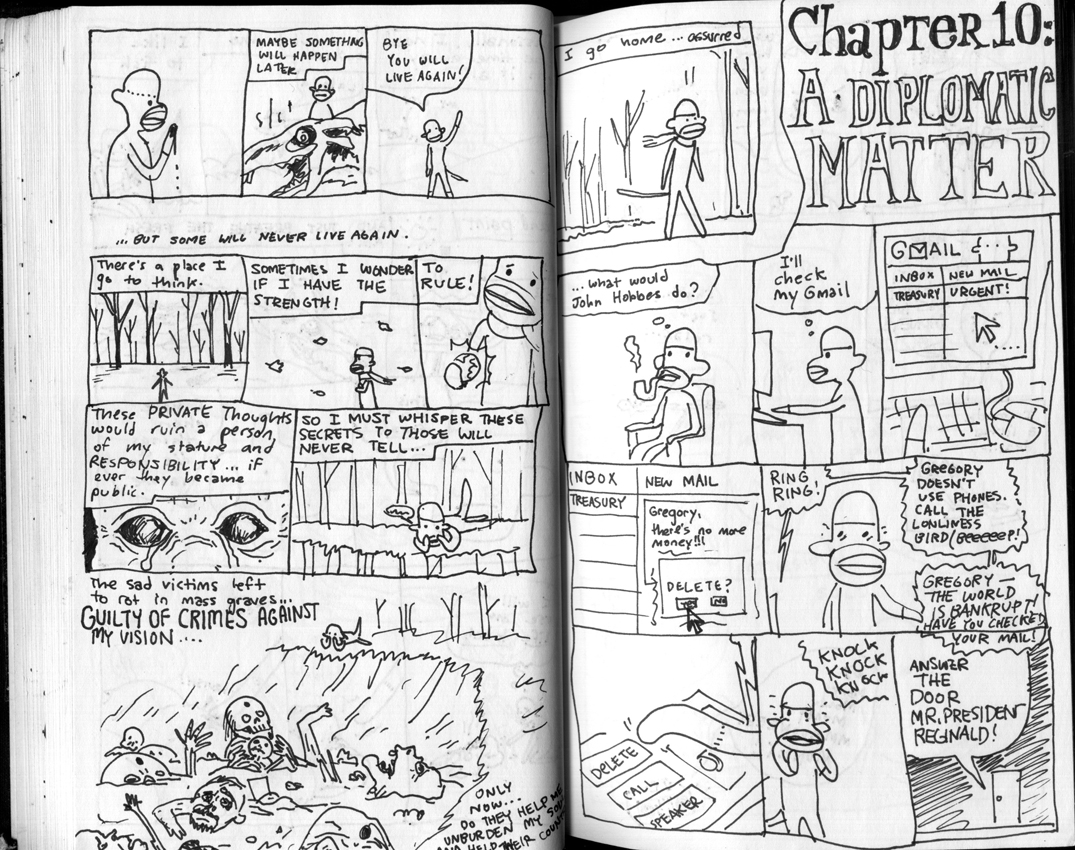 MAYBE SOMETHING
WILL HAPPEN
LATER
BYE
YOU WILL
LIVE AGAIN!
...BUT SOME WILL NEVER LIVE AGAIN.
There's a place I
go to think.
SOMETIMES I WONDER
IF I HAVE THE
STRENGTH!
TO
RULE!
These PRIVATE Thoughts
would ruin a person
of my stature and
RESPONSIBILITY... if
ever they became
public.
SO I MUST WHISPER THESE
SECRETS TO THOSE WILL
NEVER TELL...
The sad victims left
to rot in mass graves...
GUILTY OF CRIMES AGAINST
MY VISION....
ONLY
NOW...
DO THEY HELP ME
UNBURDEN MY SOUL
AND HELP THEIR
I go home... assurred
Chapter 10:
A DIPLOMATIC
MATTER
...what would
John Hobbes do?
I'll
check
my Gmail
GMAIL {··}
INBOX NEW MAIL
TREASURY URGENT!
INBOX NEW MAIL
TREASURY
Gregory,
there's no more
money!!!
DELETE?
RING
RING!
GREGORY
DOESN'T
USE PHONES.
CALL THE
LONLINESS
BIRD/Beeeeep!
GREGORY—
THE WORLD
IS BANKRUPT!
HAVE YOU CHECKED
YOUR MAIL!
DELETE
CALL
SPEAKER
KNOCK
KNOCK
KNOCK
ANSWER
THE
DOOR
MR. PRESIDENT
REGINALD!